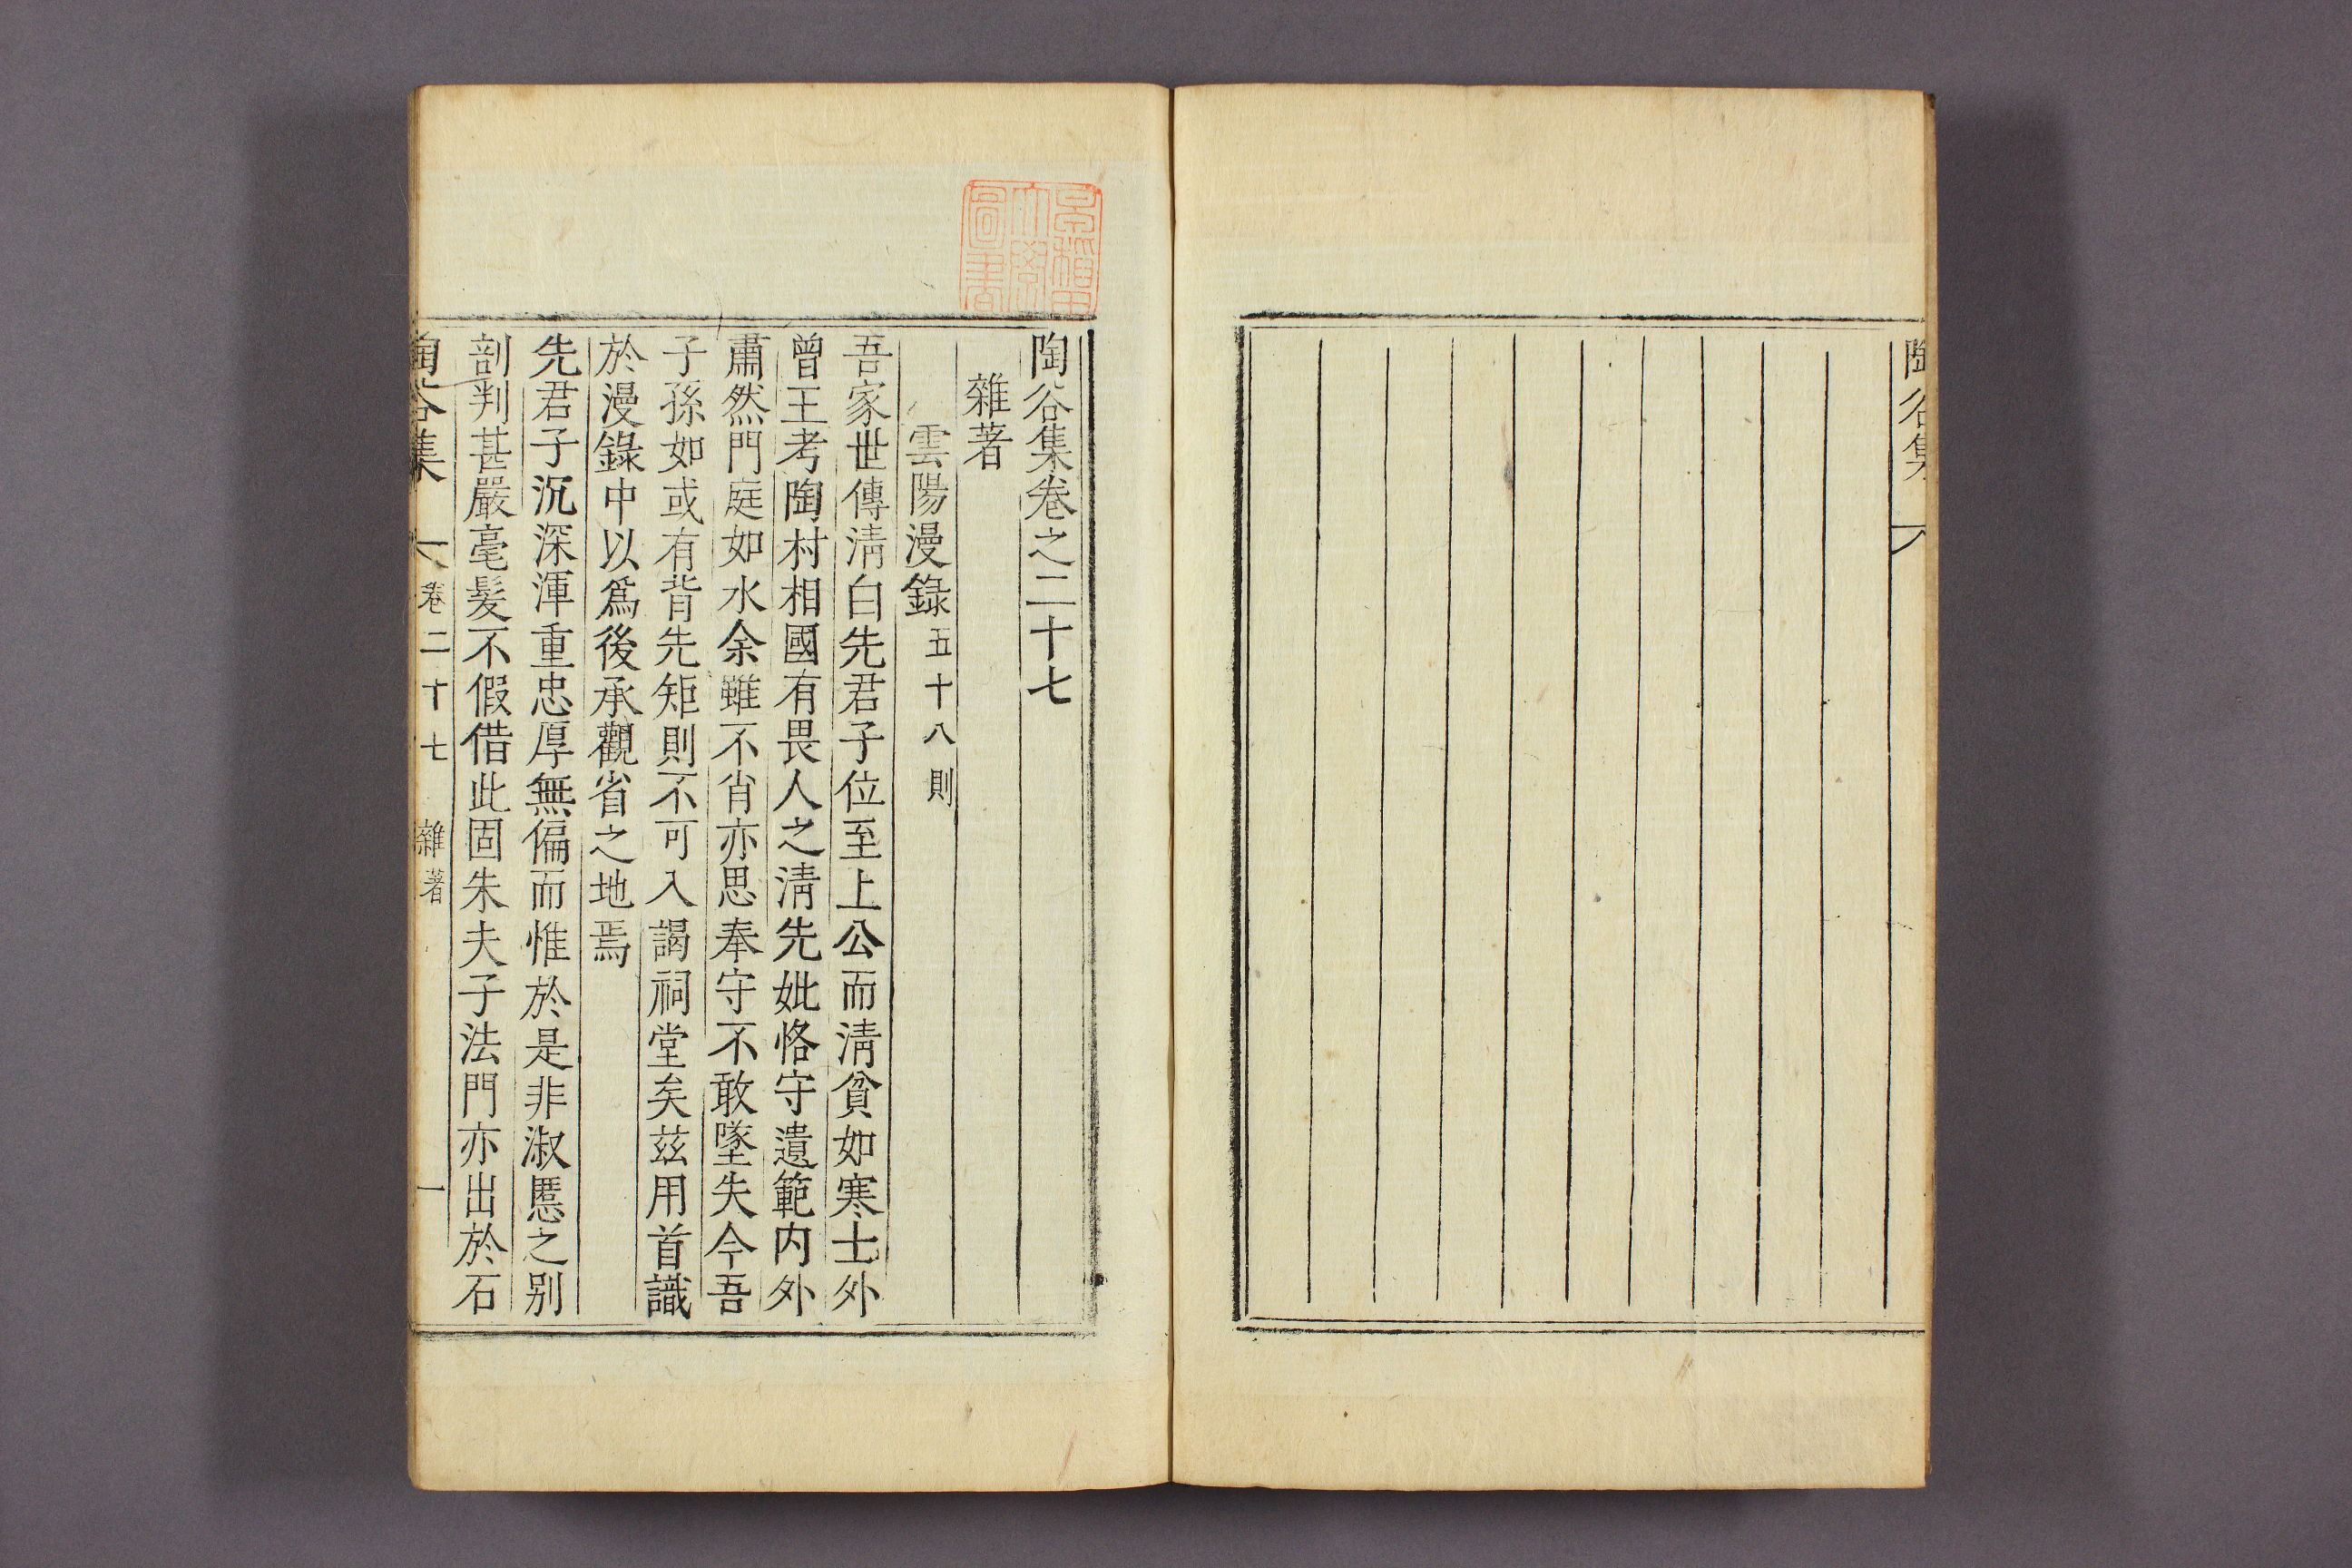 陶谷集
陶谷集卷之二十七
雜著
雲陽漫錄五十八則
吾家世傳淸白先君子位至上公而淸貧如寒士外
曾王考陶村相國有畏人之淸先妣恪守遺範内外
肅然門庭如水余雖不肖亦思奉守不敢墜失今吾
子孫如或有背先矩則不可入謁祠堂矣茲用首識
於漫錄中以爲後承觀省之地焉
先君子沉深渾重忠厚無偏而惟於是非淑慝之别
剖判甚嚴毫髮不假借此固朱夫子法門亦出於石
陶谷集 卷二十七 雜著 一
早稲田大學圖書